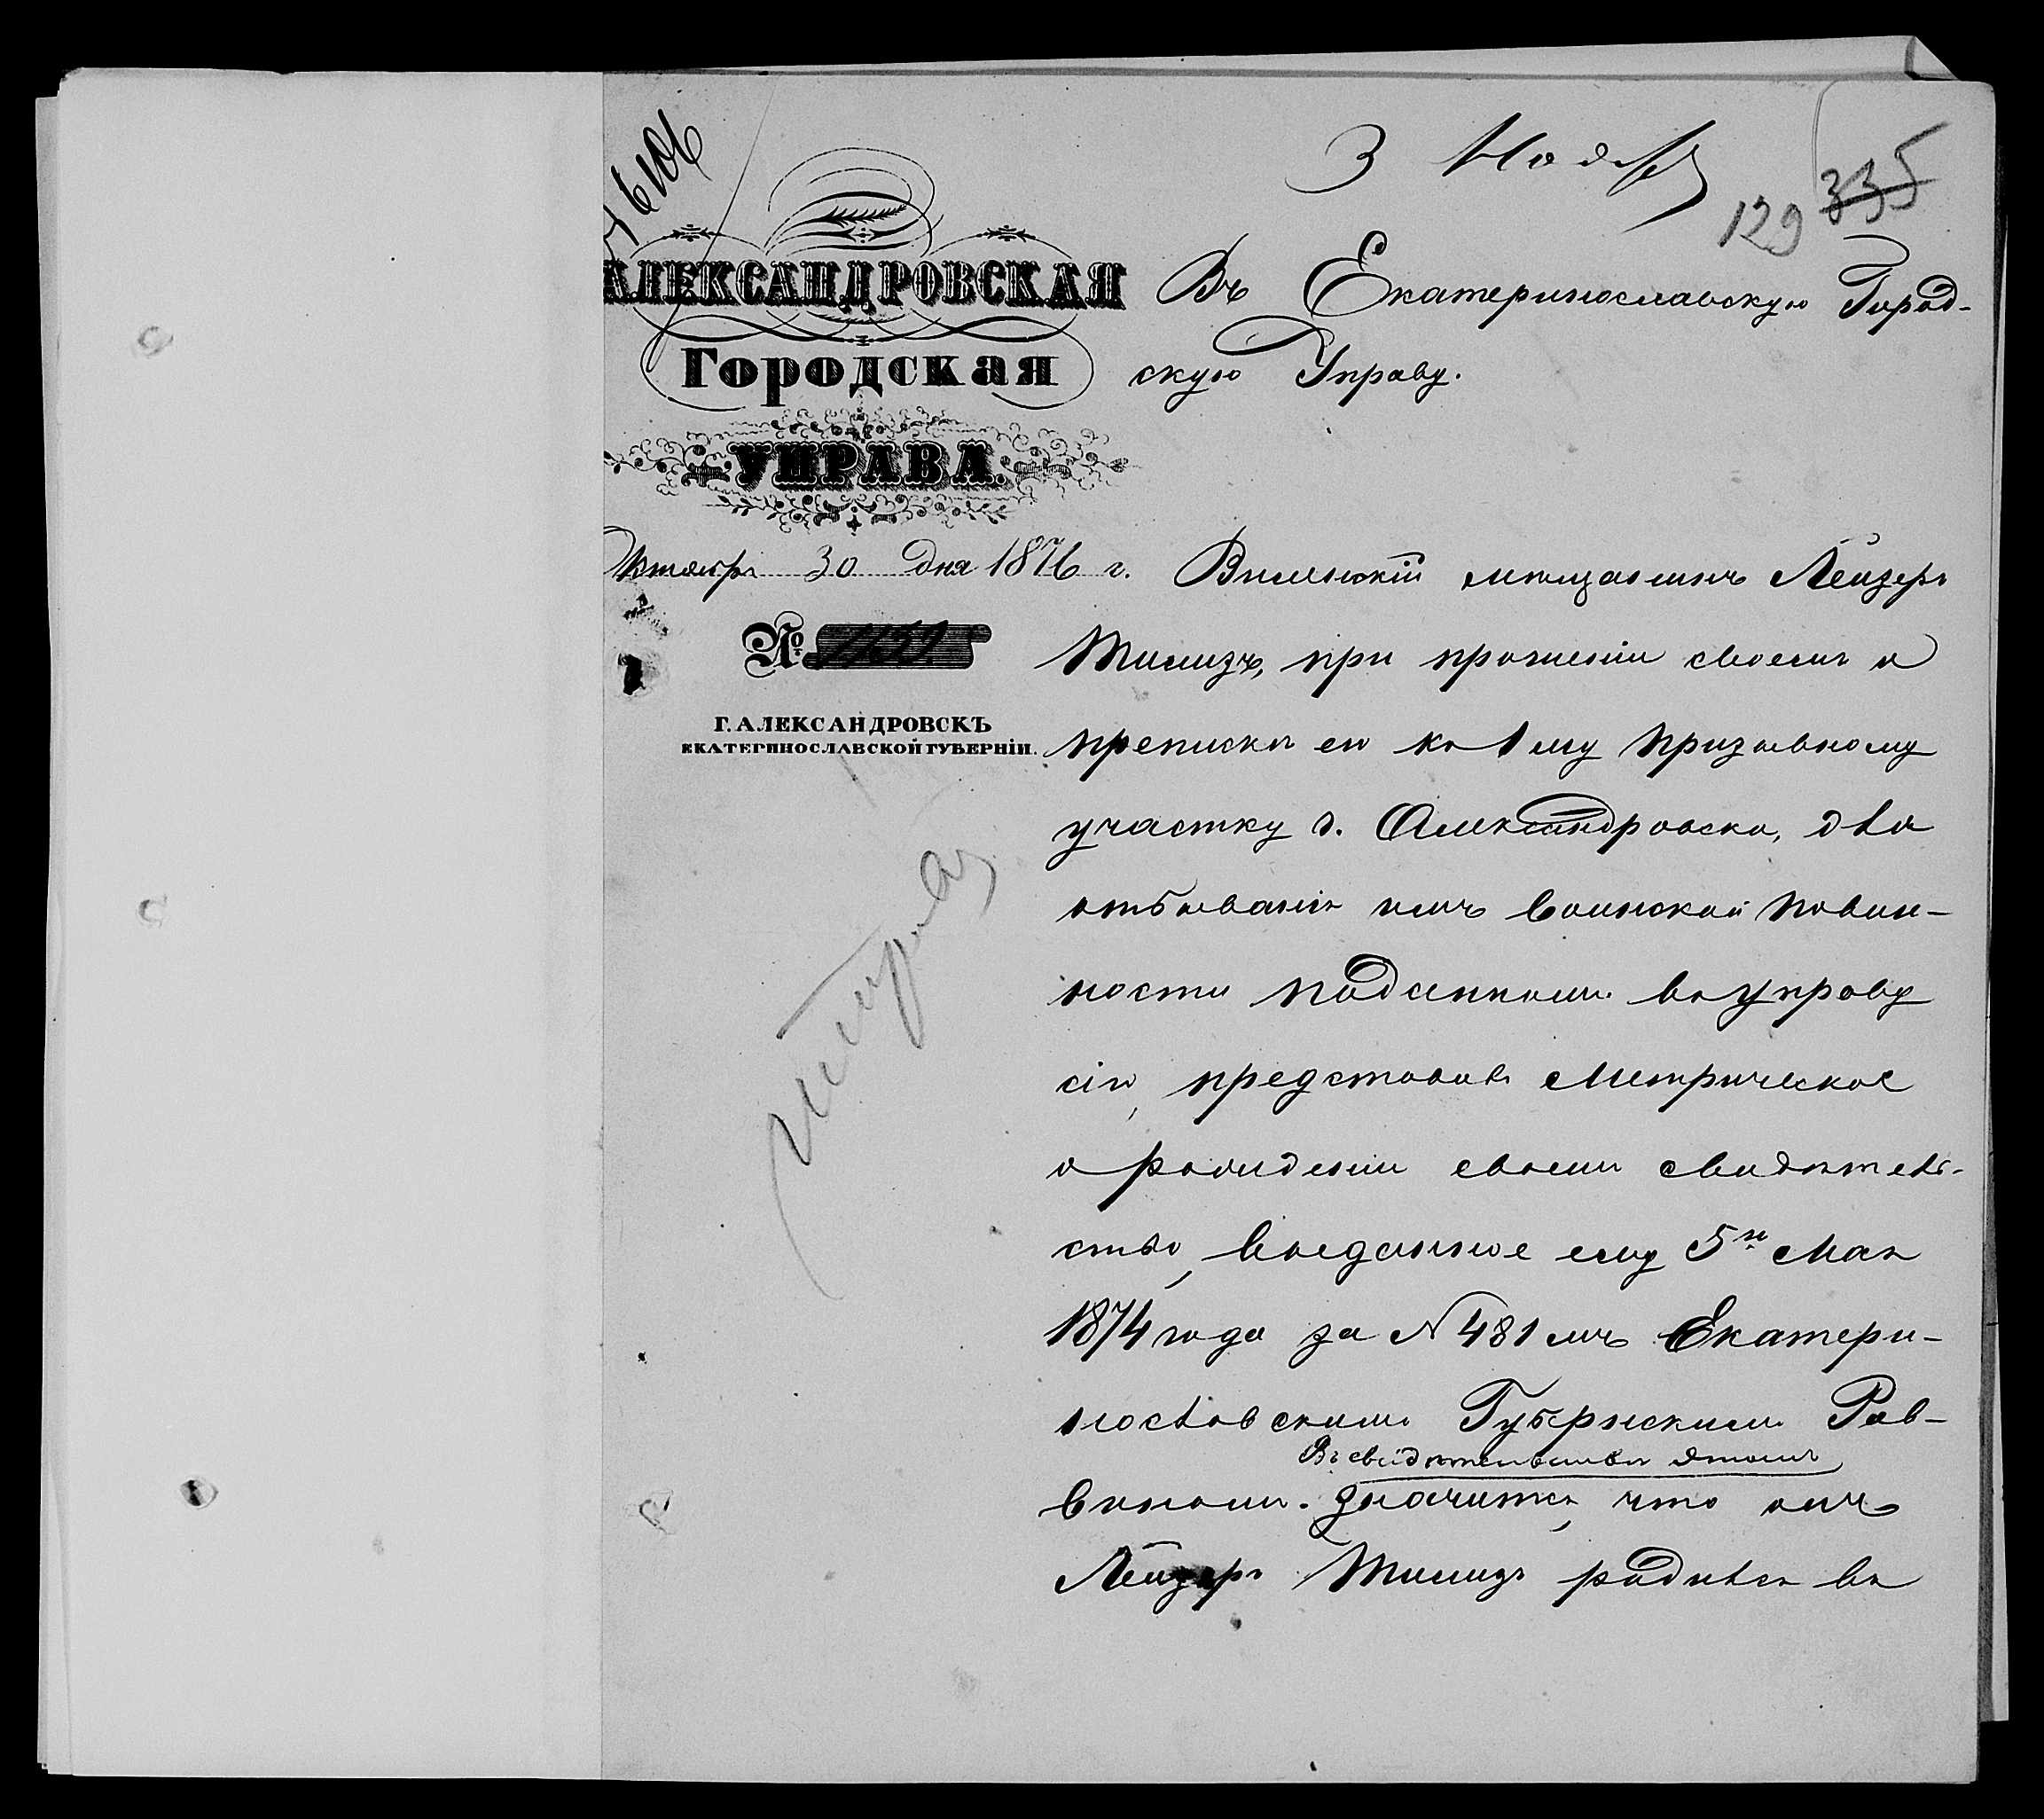 6106
3 Ноябр
129 335
АЛЕКСАНДРОВСКАЯ
Городская
УПРАВА.
Октябр 30 дня 1876 г.
№ 1150
Г. АЛЕКСАНДРОВСКЪ
ЕКАТЕРИНОСЛАВСКОЙ ГУБЕРНІИ.
Въ Екатеринославскую Город-
скую Управу.
Виленскій мѣщанинъ Лейзеръ
Тилизъ, при прошеніи своемъ о
преписки его къ 1му призывному
участку г. Александровска, для
отбыванія имъ воинской повин-
ности поданномъ въ управу
сію, представивъ метрическое
о рожденіи своемъ свидѣтель-
ство, выданное ему 5го Мая
1874 года за N 481 мъ Екатери-
нославскимъ Губернскимъ Рав-
виномъ. Въ свидѣтельствѣ этомъ
значится, что онъ
Лейзеръ Тилизъ родился въ